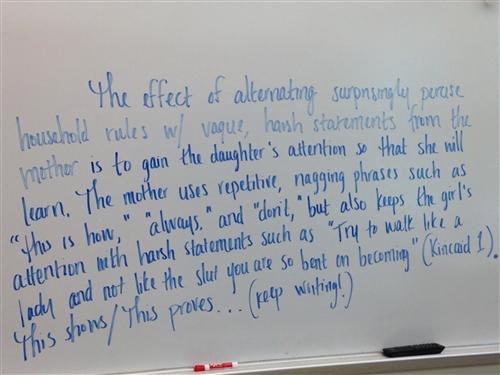 The effect of alternating surprisingly percise
household rules w/ vague, harsh statements from the
mother is to gain the daughter's attention so that she will
learn. The mother uses repetitive, nagging phrases such as
"this is how," "always," and "don't," but also keeps the girl's
attention with harsh statements such as "Try to walk like a
lady and not like the slut you are so bent on becoming" (Kincaid 1).
This shows/This proves... (keep writing!)